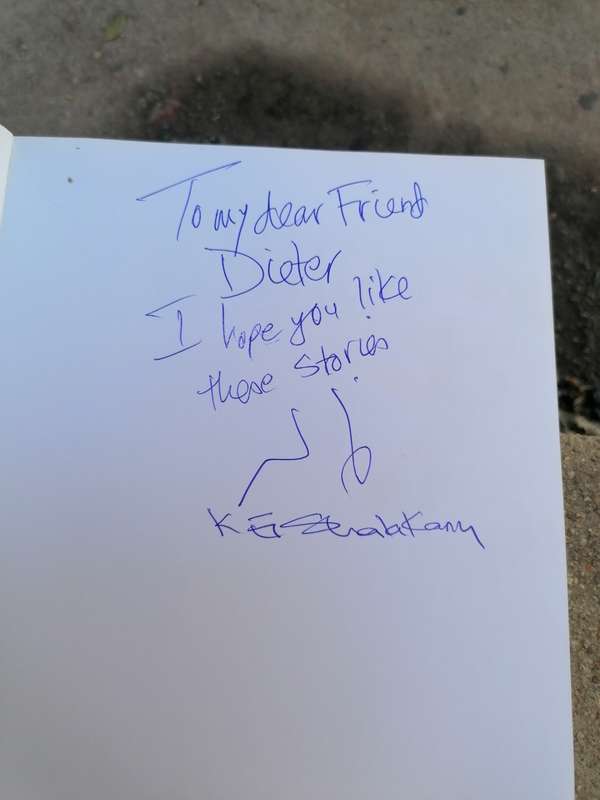 To my dear Friend
Dieter
I hope you like
these stories